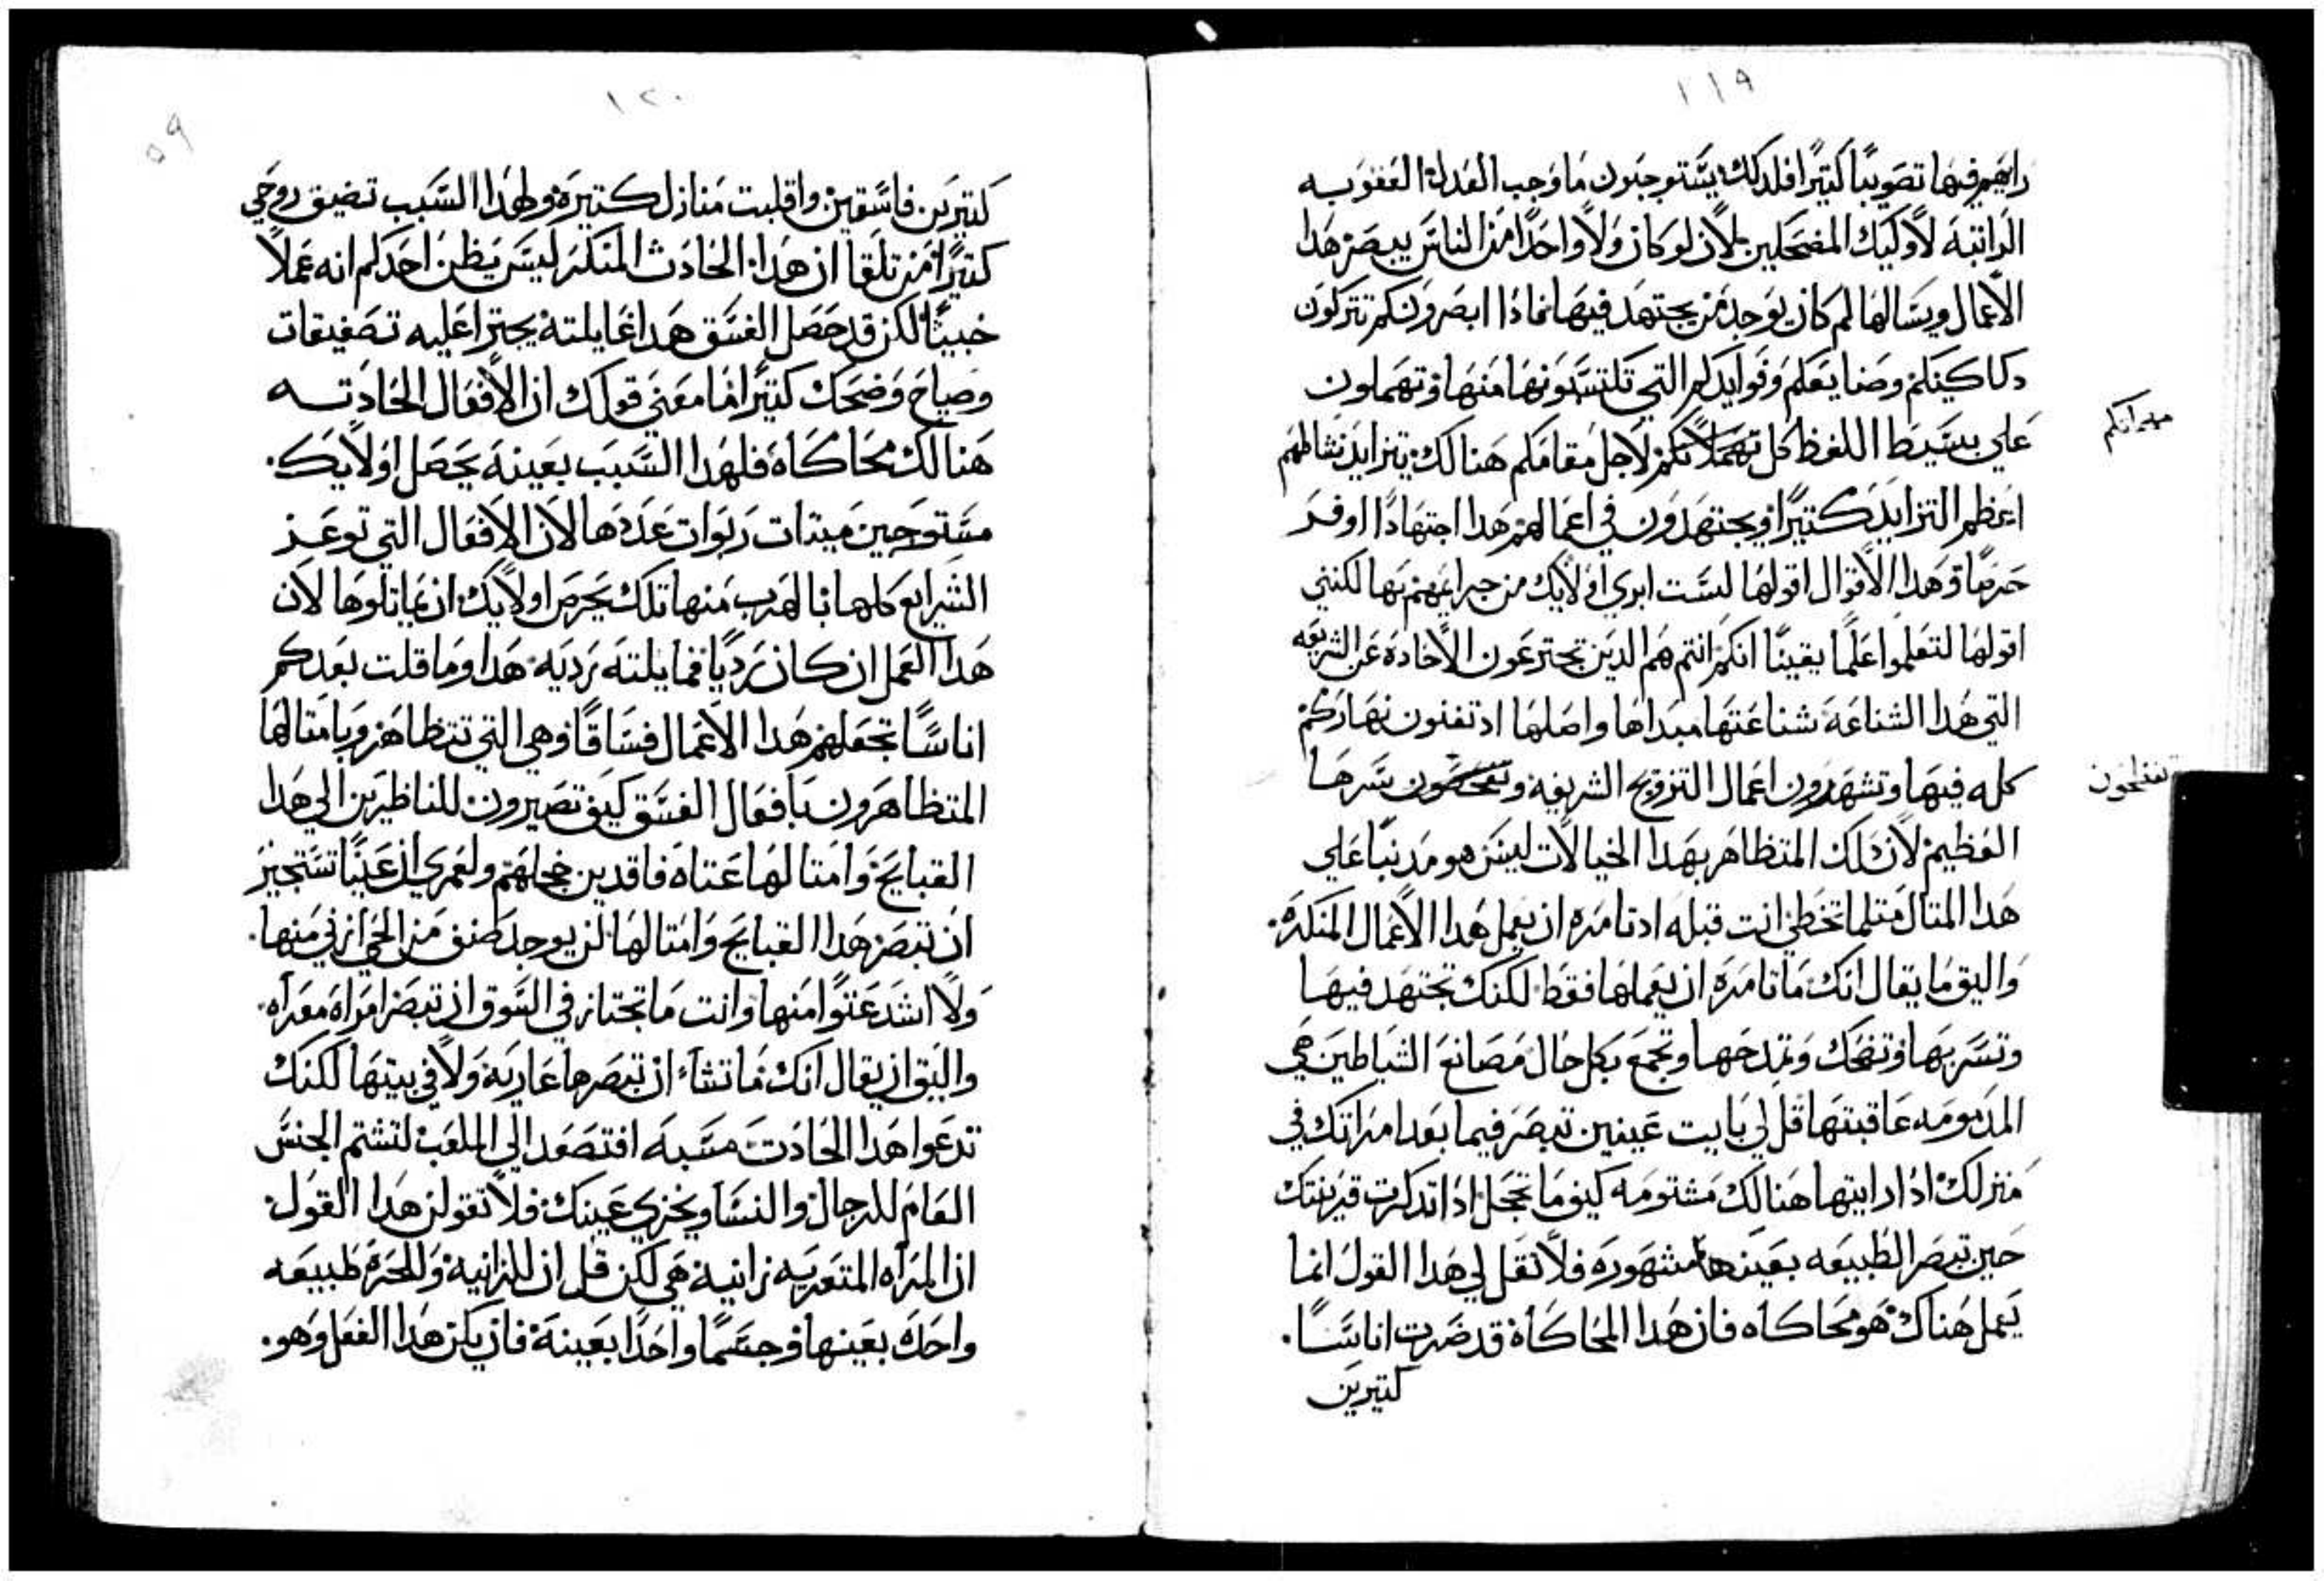 ١١٩
رايهم فيها تصويبًا كثيرًا فلدلك يستوجبون ما وجب العدل العقوبه
الراتبة لاوليك المضحكين لان لو كان ولا واحدًا من الناس يبصر هدا
الاعمال ويسالها لم كان يوجد من يجتهد فيها فمادا ابصرونكم تتركون
دكاكينكم وصنايعكم وفوايدكم التي تكتسبونها منها وتهملون
علي بسيط اللفظ كل تهملاتكم لاجل مقامكم هنالك يتزايد نشاطهم
مهماتكم
اعظم التزايد كثيرًا ويجتهدون في اعمالهم هدا اجتهادًا اوفر
حرصًا وهدا الاقوال اقولها لست ابري اولايك من جرايمهم بها لكنني
اقولها لتعلموا علمًا يقينًا انكم انتم هم الدين تخترعون الاخادة عن الشريعه
التي هدا الشناعة شناعتها مبداها واصلها اد تفنون نهاركم
كله فيها وتشهرون اعمال التزويج الشريفه وتفضحون سرها
تفضحون
العظيم لان دلك المتظاهر بهدا الخيالات ليس هو مدنبًا علي
هدا المتال متلما تخطي انت قبله اد تامره ان يعمل هدا الاعمال المنكرة.
واليق ما يقال انك ما تامره ان يعملها فقط لكنك تجتهد فيها
وتسر بها وتضحك وتمدحها وتجمع بكل حال مصانع الشياطين هي
المدمومه عاقبتها قل لي بايت عينين تبصر فيما بعد امراتك في
منزلك ادا رايتها هنالك مشتومه كيف ما تخجل ادا تدكرت قرينتك
حين تبصر الطبيعه بعينها مشهوره فلا تقل لي هدا القول انما
يعمل هناك هو محاكاه فان هدا المحاكاة قد صيرت اناسًا.
كتيرين
١٢٠
٥٩
كتيرين فاسقين واقلبت منازل كتيرة ولهدا السبب تضيق روحي
كتيرًا من تلقا ان هدا الحادث المنكر ليس يظن احدكم انه عملاً
خبيثًا لكن قد حصل الفسق هدا غايلته يجترا عليه تصفيقات
وصياح وضحك كتيرًا فما معني قولك ان الافعال الحادته
هنالك محاكاة فلهدا السبب بعينه يحصل اولايك.
مستوجبين ميتات ربوات عددها لان الافعال التي توعز
الشرايع كلها بالهرب منها تلك يحرص اولايك ان يماتلوها لان
هدا العمل ان كان رديًا فمايلته رديه هدا وما قلت بعد كم
اناسًا تجعلهم هدا الاعمال فساقًا وهي التي تتظاهر وبامتالها
المتظاهرون بافعال الفسق كيف تصيرون للناظرين الي هدا
القبايح وامتالها عتاه فاقدين خجلهم ولعمري ان عينًا تستجيز
ان تبصر هدا القبايح وامتالها لن يوجد صنف من الحي ازني منها.
ولا اشد عتوًا منها وانت ما تجتاز في السوق ان تبصر امراه معراه.
واليق ان يقال انك ما تشاء ان تبصرها عاريه ولا في بيتها لكنك
تدعوا هدا الحادت مسبه افتصعد الي الملعب لتشتم الجنس
العام للرجال والنسا ويخزي عينك فلا تقولن هدا القول
ان المراه المتعريه زانية هي لكن قل ان للزانية وللحرة طبيعه
واحدة بعينها وجسمًا واحدًا بعينه فان يكن هدا الفعل وهو.